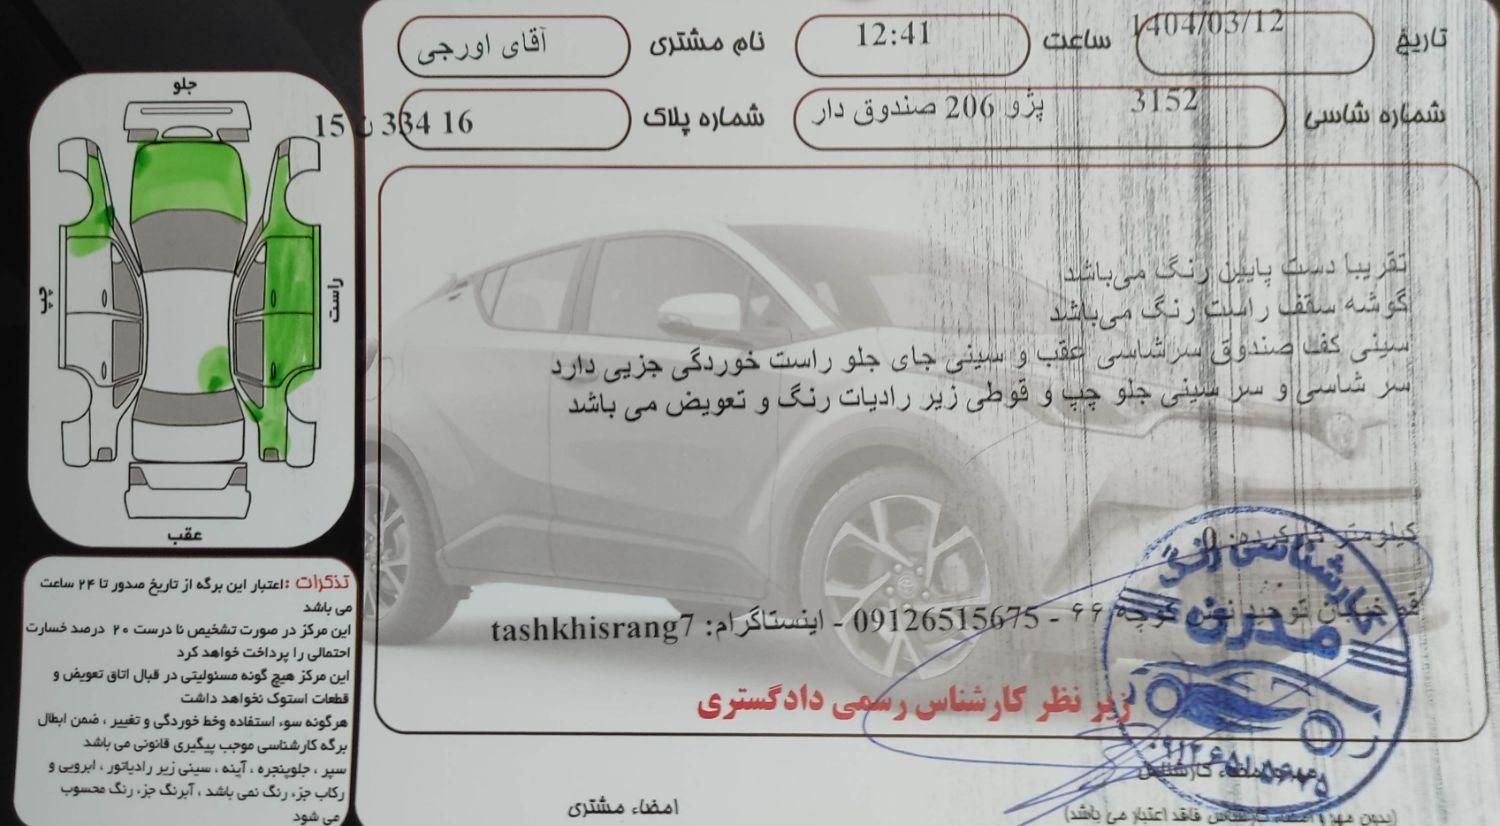 تاریخ 1404/03/12 ساعت 12:41 نام مشتری آقای اورجی
شماره شاسی 3152 پژو 206 صندوق دار شماره پلاک 16 334 ن 15
تقریبا دست پایین رنگ می‌باشد
گوشه سقف راست رنگ می‌باشد
سینی کف صندوق سرشاسی عقب و سینی جای جلو راست خوردگی جزیی دارد
سر شاسی و سر سینی جلو چپ و قوطی زیر رادیات رنگ و تعویض می باشد
کیلومتر کارکرد: 0
خیابان توحید نبش کوچه ۶۶ - 09126515675 - اینستاگرام: tashkhisrang7
زیر نظر کارشناس رسمی دادگستری
مهر و امضاء کارشناس
امضاء مشتری
(بدون مهر و امضاء کارشناس فاقد اعتبار می باشد)
کارشناسی رنگ
مدرن
۰۹۱۲۶۵۱۵۶۷۵
جلو
چپ
راست
عقب
تذکرات : اعتبار این برگه از تاریخ صدور تا ۲۴ ساعت
می باشد
این مرکز در صورت تشخیص نا درست ۲۰ درصد خسارت
احتمالی را پرداخت خواهد کرد
این مرکز هیچ گونه مسئولیتی در قبال اتاق تعویض و
قطعات استوک نخواهد داشت
هرگونه سوء استفاده وخط خوردگی و تغییر ، ضمن ابطال
برگه کارشناسی موجب پیگیری قانونی می باشد
سپر ، جلوپنجره ، آینه ، سینی زیر رادیاتور ، ابرویی و
رکاب جزء رنگ نمی باشد ، آبرنگ جزء رنگ محسوب
می شود